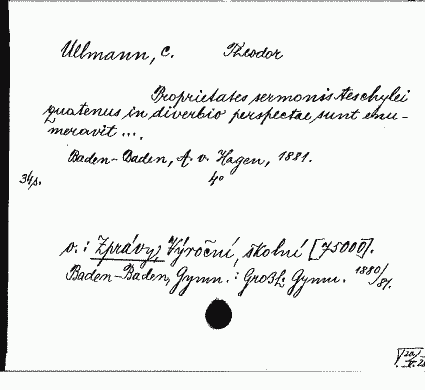 Ullmann, C. Theodor
Proprietates sermonis Aeschylei
quatenus in diverbio perspectae sunt enu-
meravit ...
Baden-Baden, A. v. Hagen, 1881.
34 s. 4°
v.: Zprávy, Výroční, školní [75000].
Baden-Baden, Gymn.: Großh. Gymn. 1880/81.